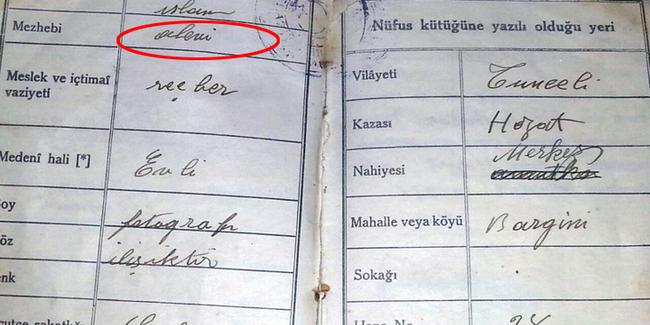 islam
Mezhebi aleni
Meslek ve içtimaî vaziyeti reçber
Medenî hali [*] Evli
Boy fotoğrafı
Göz ilişiktir
Renk
Nüfus kütüğüne yazılı olduğu yeri
Vilâyeti Tunceli
Kazası Hozat
Nahiyesi Merkez
Mahalle veya köyü Bargini
Sokağı
Hane No. 24